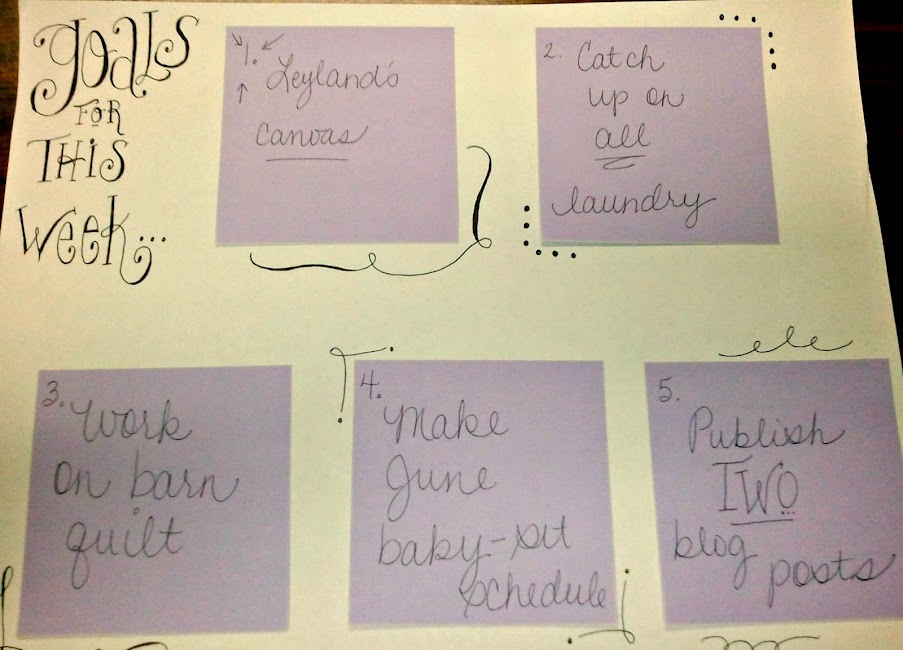 Goals
FOR
THIS
Week...
1. Leyland's
canvas
2. Catch
up on
all
laundry
3. Work
on barn
quilt
4. Make
June
baby-sit
schedule
5. Publish
TWO
blog
posts